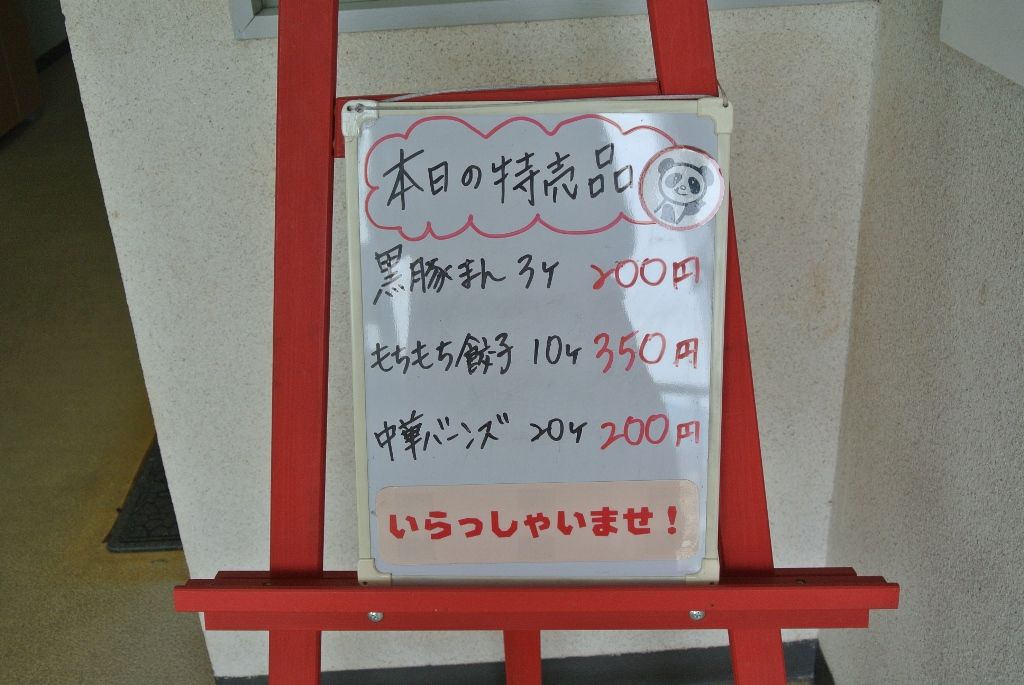 本日の特売品
黒豚まん 3ケ 200円
もちもち餃子 10ケ 350円
中華バーンズ 20ケ 200円
いらっしゃいませ！